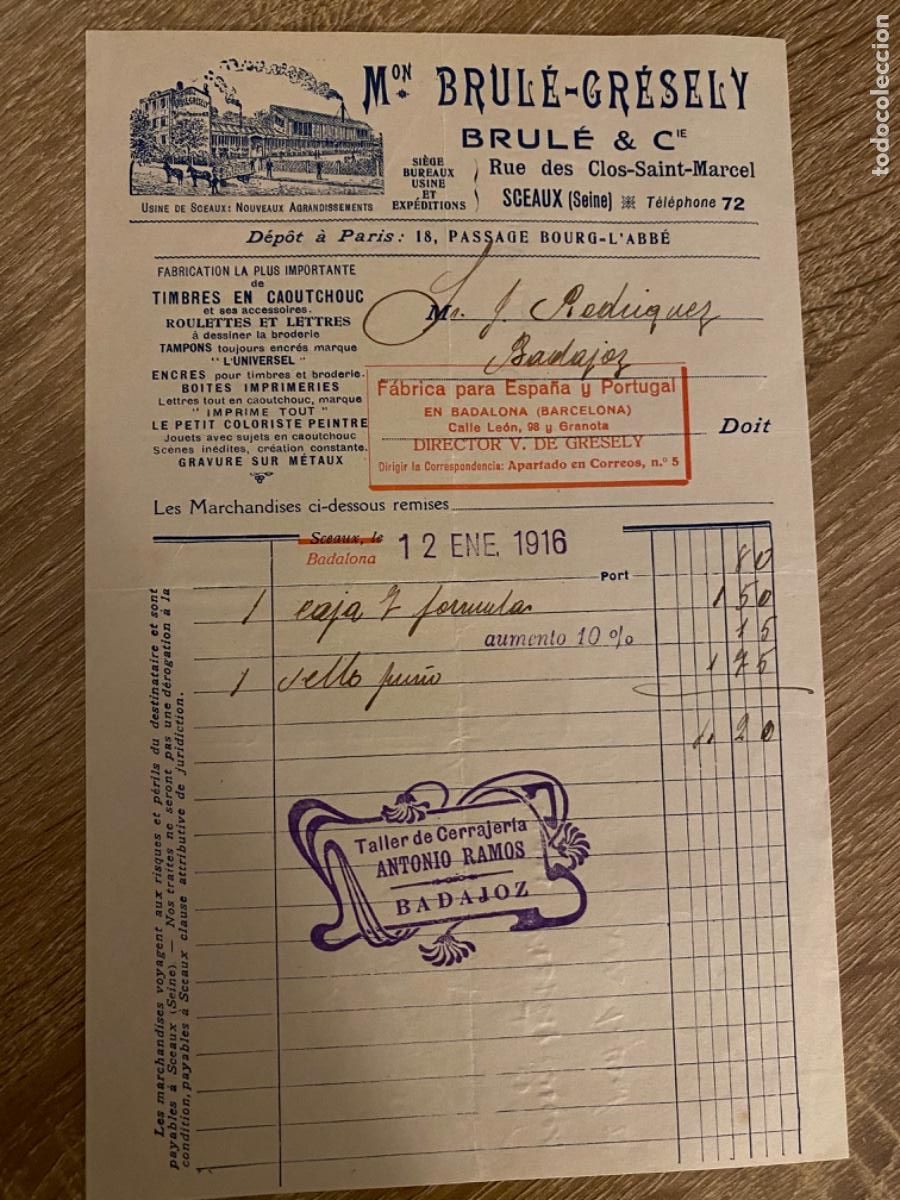 Mon BRULÉ-GRÉSELY
BRULÉ & CIE
SIÈGE
BUREAUX
USINE
ET
EXPÉDITIONS
Rue des Clos-Saint-Marcel
SCEAUX (Seine) Téléphone 72
BRULÉ-GRESELY
USINE DE SCEAUX: NOUVEAUX AGRANDISSEMENTS
Dépôt à Paris: 18, PASSAGE BOURG-L'ABBÉ
FABRICATION LA PLUS IMPORTANTE
de
TIMBRES EN CAOUTCHOUC
et ses accessoires.
ROULETTES ET LETTRES
à dessiner la broderie
TAMPONS toujours encrés marque
"L'UNIVERSEL"
ENCRES pour timbres et broderie.
BOITES IMPRIMERIES
Lettres tout en caoutchouc, marque
"IMPRIME TOUT"
LE PETIT COLORISTE PEINTRE
Jouets avec sujets en caoutchouc
Scènes inédites, création constante.
GRAVURE SUR MÉTAUX
Mr. J. Rodriguez
Badajoz
Fábrica para España y Portugal
EN BADALONA (BARCELONA)
Calle León, 98 y Granota
DIRECTOR V. DE GRESELY
Dirigir la Correspondencia: Apartado en Correos, n.º 5
Doit
Les Marchandises ci-dessous remises
Sceaux, le
Badalona
12 ENE. 1916
Port 80
1 caja 7 formulas 1 50
aumento 10 % 15
1 sello puño 1 75
4. 20
Taller de Cerrajería
ANTONIO RAMOS
BADAJOZ
Les marchandises voyagent aux risques et périls du destinataire et sont
payables à Sceaux (Seine). — Nos traites ne seront pas une dérogation à la
condition, payables à Sceaux clause attributive de juridiction.
todocoleccion